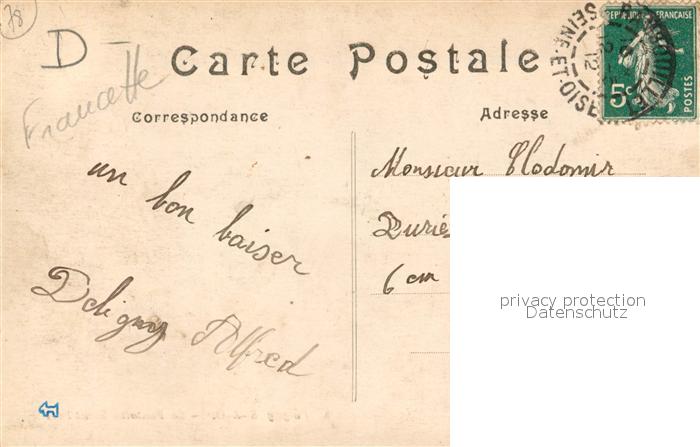 78
D -
Carte Postale
REPUBLIQUE FRANÇAISE
5c
POSTES
SEINE-ET-OISE
Francette
Correspondance
Adresse
un bon baiser
Deligny Alfred
Monsieur Clodomir
Durié
6 cm
privacy protection
Datenschutz